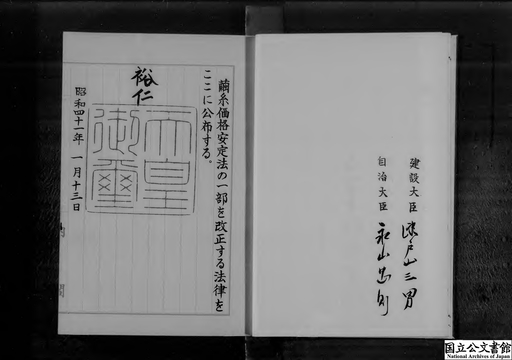 建設大臣 瀬戸山三男
自治大臣 永山忠則
繭糸価格安定法の一部を改正する法律を
ここに公布する。
裕仁
天皇
御璽
昭和四十一年一月十三日
国立公文書館
National Archives of Japan